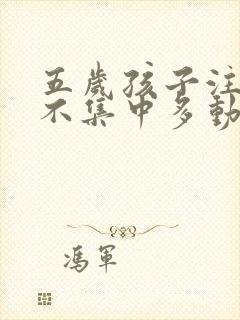 五歲孩子注
不集中多動
馮軍